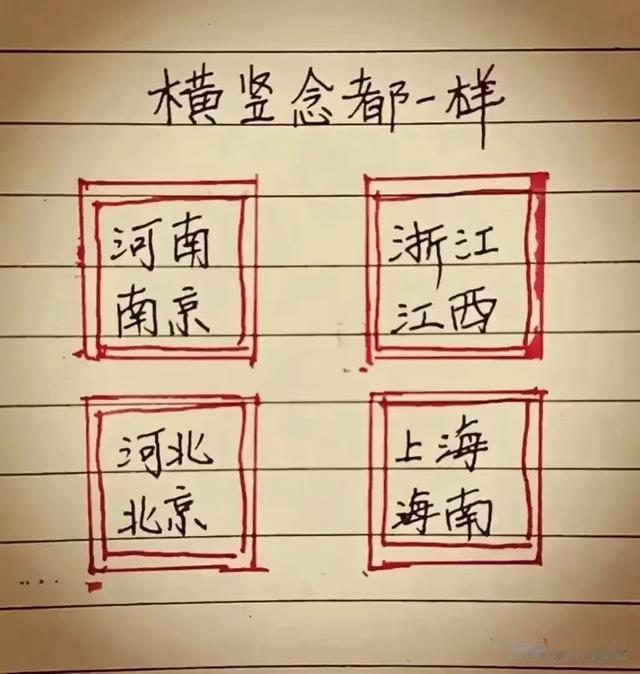 横竖念都一样
河南 浙江
南京 江西
河北 上海
北京 海南